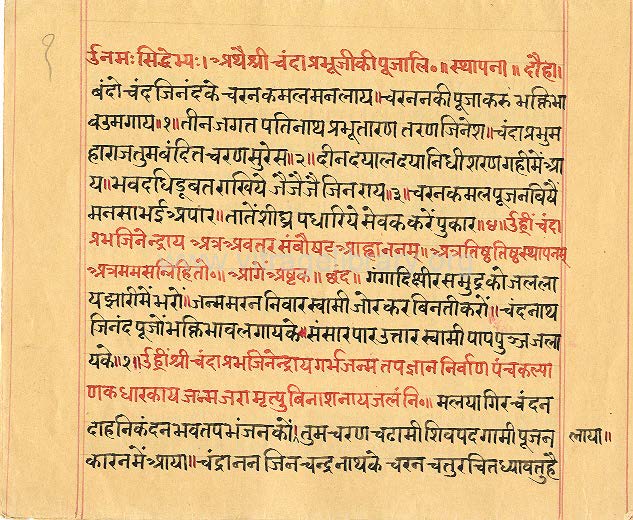 १
र्उनमः सिद्धेभ्यः। अथैश्री चंदाप्रभूजीकी पूजालि॰॥ स्थापना॥ दौहा।
बंदो चंद जिनंदके चरन कमल मनलाय॥ चरननकी पूजा करु भक्तिभा
व उमगाय॥१॥ तीन जगत पतिनाथ प्रभूतारण तरण जिनेश॥ चंदाप्रभुम
हाराज तुम वंदित चरण सुरेस॥२॥ दीनदयाल दयानिधी शरण गही में आ
य॥ भवदधि डूबत राखिये जै जै जै जिनराय॥३॥ चरन कमल पूजन विषैं
मनसा भई अपार॥ तातें शीघ्र पधारिये सेवक करें पुकार॥४॥ र्उह्रीं चंदा
प्रभजिनेन्द्राय अत्र अवतर संबौषट् आह्वाननम्॥ अत्र तिष्ठ तिष्ठ स्थापनम्
अत्र मम सन्निहितो॰॥ आगे अष्टक॥ छंद॥ गंगादि क्षीर समुद्र को जल ला
य झारी में भरों॥ जन्म मरन निवार स्वामी जोर कर बिनती करों॥ चंदनाथ
जिनंद पूजों भक्ति भाव लगायके॥ संसार पार उत्तार स्वामी पाप पुञ्ज जला
यके॥१॥ र्उह्रीं श्री चंदाप्रभजिनेन्द्राय गर्भ जन्म तप ज्ञान निर्वाण पंचकल्या
णक धारकाय जन्म जरा मृत्यु बिनाशनाय जलं नि॰॥ मलयागिर चंदन
दाह निकंदन भवतप भंजन कों॥ तुम चरण चढामी शिवपद गामी पूजन लाया॥
कारन में आया॥ चंद्रानन जिन चन्द्रनाथ के चरन चतुर चित ध्यावतु है